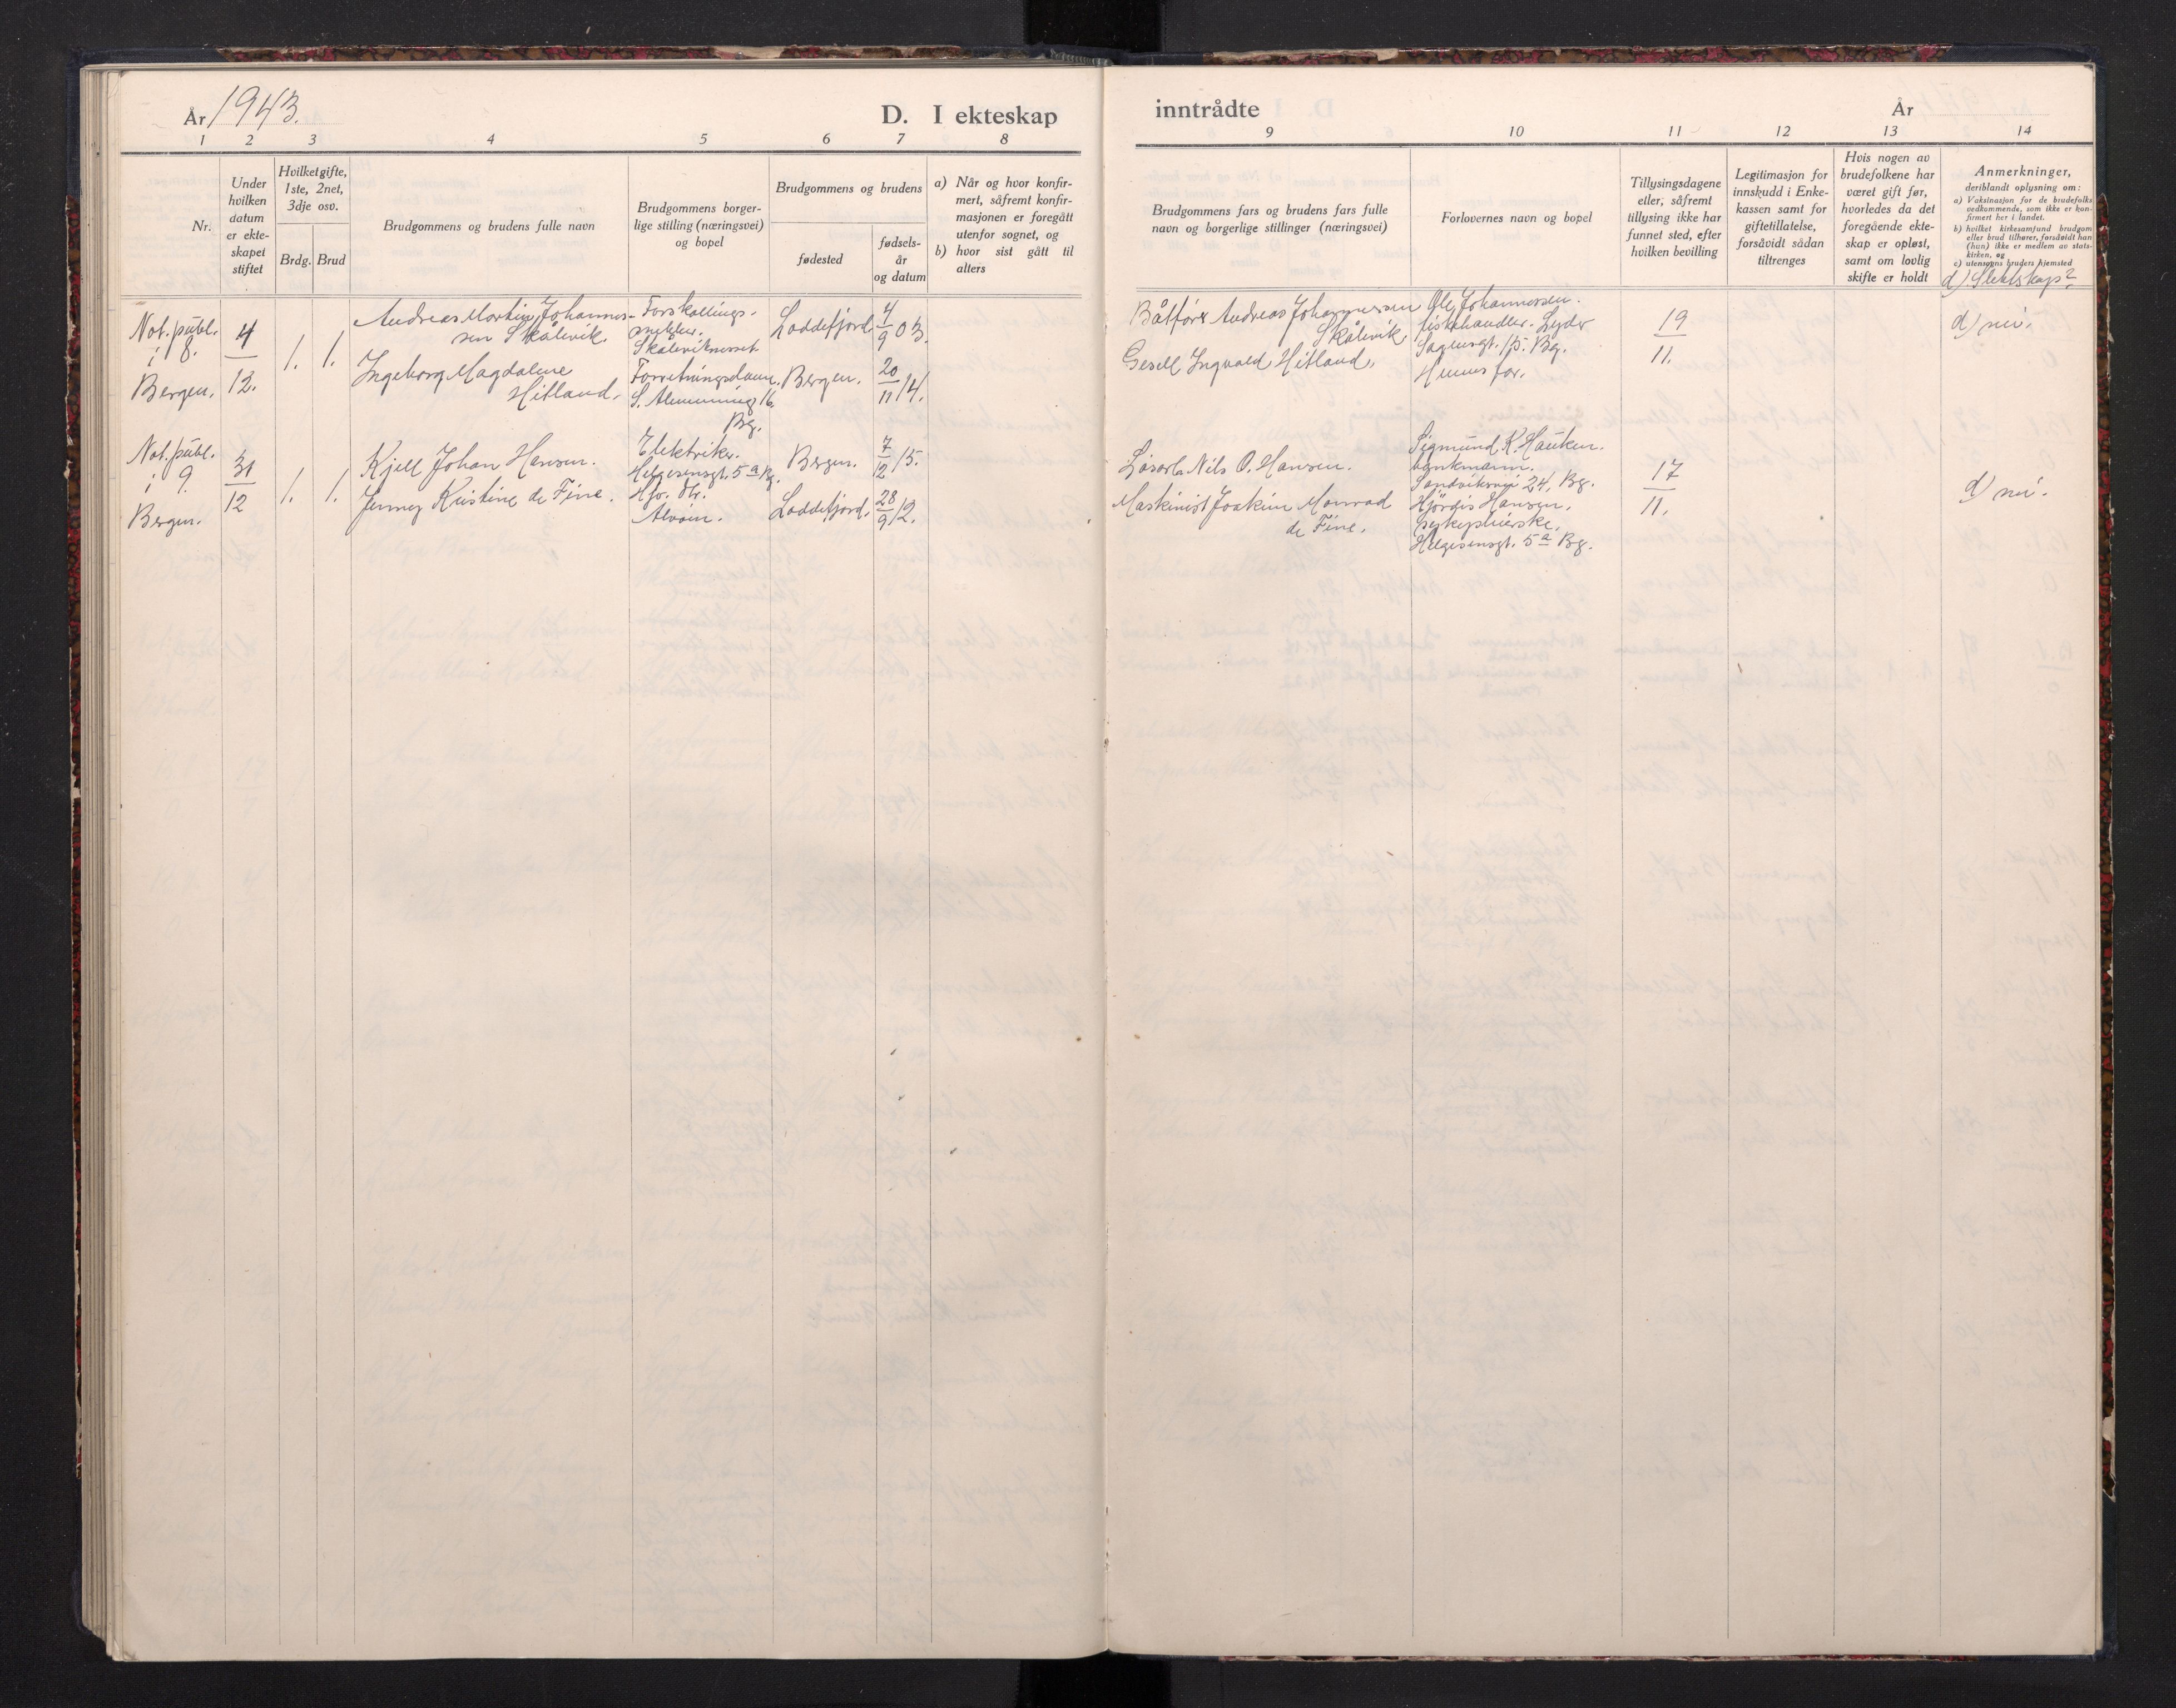 År 1943.
D. I ekteskap
1 2 3 4 5 6 7 8
Nr.
Under
hvilken
datum
er ekte-
skapet
stiftet
Hvilket gifte,
1ste, 2net,
3dje osv.
Brdg. Brud
Brudgommens og brudens fulle navn
Brudgommens borger-
lige stilling (næringsvei)
og bopel
Brudgommens og brudens
fødested
fødsels-
år
og datum
a) Når og hvor konfir-
mert, såfremt konfir-
masjonen er foregått
utenfor sognet, og
b) hvor sist gått til
alters
Not. publ.
i 8.
Bergen.
4
12.
1. 1.
Andreas Martin Johannes-
sen Skålevik.
Ingeborg Magdalene
Hitland.
Skåleviksneset
S. Almenning 16.
Bg.
Loddefjord
Bergen.
4
9 03.
20
11 14.
Not. publ.
i 9.
Bergen.
31
12
1. 1.
Kjell Johan Hansen.
Jenny Kristine de Fine.
Elektriker.
Helgesensgt. 5a Bg.
Hfr. dtr.
Alvøen.
Bergen.
Loddefjord.
7
2 15.
28
9 12.
inntrådte
År
9 10 11 12 13 14
Brudgommens fars og brudens fars fulle
navn og borgerlige stillinger (næringsvei)
Forlovernes navn og bopel
Tillysingsdagene
eller, såfremt
tillysing ikke har
funnet sted, efter
hvilken bevilling
Legitimasjon for
innskudd i Enke-
kassen samt for
giftetillatelse,
forsåvidt sådan
tiltrenges
Hvis nogen av
brudefolkene har
været gift før,
hvorledes da det
foregående ekte-
skap er opløst,
samt om lovlig
skifte er holdt
Anmerkninger,
deriblandt oplysning om:
a) Vaksinasjon for de brudefolks
vedkommende, som ikke er kon-
firmert her i landet.
b) hvilket kirkesamfund brudgom
eller brud tilhører, forsåvidt han
(hun) ikke er medlem av stats-
kirken, og
c) utensogns bruders hjemsted
d) Slektskap?
Båtfører Andreas Johannessen
Skålevik
Gesell Ingvald Hitland.
Ole Johannessen.
fiskehandler. Lyder
Sagensgt. 15. Bg.
Hennes far.
19
11.
d) nei.
Løsarb. Nils O. Hansen.
Maskinist Joakim Monrad
de Fine.
Sigmund K. Hauken.
bankmann.
Sandviksvei 24, Bg.
Hjørdis Hansen.
sykepleierske.
Helgesensgt. 5a Bg.
17
11.
d) nei.